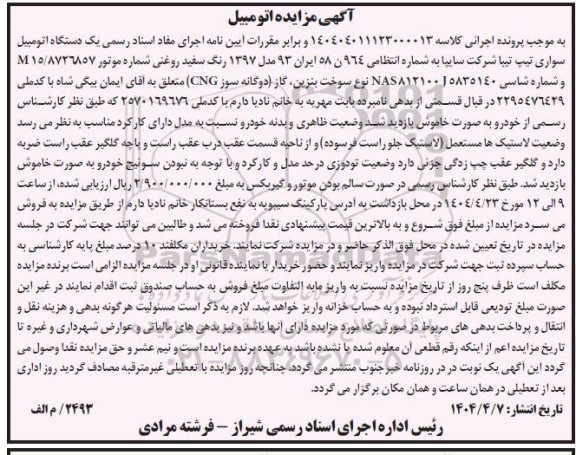 آگهی مزایده اتومبیل
به موجب پرونده اجرائی کلاسه ۱۴۰۴۰۴۰۱۱۱۲۳۰۰۰۰۱۳ و برابر مقررات آیین نامه اجرای مفاد اسناد رسمی یک دستگاه اتومبیل
سواری تیپ تیبا شرکت سایپا به شماره انتظامی ۹۶۴ن ۵۸ ایران ۹۳ مدل ۱۳۹۷ رنگ سفید روغنی شماره موتور M ۱۵/۸۷۲۶۸۵۷
و شماره شاسی NAS۸۱۲۱۰۰J۵۸۳۵۱۴۰ نوع سوخت بنزین، گاز (دوگانه سوز CNG) متعلق به آقای ایمان بیگی شاه با کدملی
۲۲۹۵۴۷۶۴۲۹ در قبال قسمتی از بدهی نامبرده بابت مهریه به خانم نادیا دارم با کدملی ۲۵۷۰۱۶۹۶۷۶ که طبق نظر کارشناس
رسمی از خودرو به صورت خاموش بازدید شد. وضعیت ظاهری و بدنه خودرو نسبت به مدل دارای کارکرد مناسب به نظر می رسد
وضعیت لاستیک ها مستعمل (لاستیک جلو راست فرسوده) و از ناحیه قسمت عقب درب عقب راست و پاچه گلگیر عقب راست ضربه
دارد و گلگیر عقب چپ زدگی جزئی دارد وضعیت تودوزی در حد مدل و کارکرد و با توجه به نبودن سوئیچ خودرو به صورت خاموش
بازدید شد. طبق نظر کارشناس رسمی در صورت سالم بودن موتور و گیربکس به مبلغ ۲/۹۰۰/۰۰۰/۰۰۰ ریال ارزیابی شده، از ساعت
۹ الی ۱۲ مورخ ۱۴۰۴/۴/۲۳ در محل بازداشت به آدرس پارکینگ سیبویه به نفع بستانکار خانم نادیا دارم از طریق مزایده به فروش
می سرد مزایده از مبلغ فوق شروع و به بالاترین قیمت پیشنهادی نقدا فروخته می شد و طالبین می توانند جهت شرکت در جلسه
مزایده در تاریخ تعیین شده در محل فوق الذکر حاضر و در مزایده شرکت نمایند. خریداران مکلفند ۱۰ درصد مبلغ پایه کارشناسی به
حساب سپرده ثبت جهت شرکت در مزایده واریز نمایند و حضور خریدار یا نماینده قانونی او در جلسه مزایده الزامی است برنده مزایده
مکلف است ظرف پنج روز از تاریخ مزایده نسبت به واریز مابه التفاوت مبلغ فروش به حساب صندوق ثبت اقدام نمایند در غیر این
صورت مبلغ تودیعی قابل استرداد نبوده و به حساب خزانه واریز خواهد شد. لازم به ذکر است مسئولیت هرگونه بدهی و هزینه نقل و
انتقال و پرداخت بدهی های مربوط در صورتی که مورد مزایده دارای آنها باشد و نیز بدهی های مالیاتی و عوارض شهرداری و غیره تا
تاریخ مزایده اعم از اینکه رقم قطعی آن معلوم شده یا نشده باشد به عهده برنده مزایده است و نیم عشر و حق مزایده نقدا وصول می
گردد این آگهی یک نوبت در در روزنامه خبرجنوب منتشر می گردد. چنانچه روز مزایده با تعطیلی غیرمترقبه مصادف گردید روز اداری
بعد از تعطیلی در همان ساعت و همان مکان برگزار می گردد.
تاریخ انتشار: ۱۴۰۴/۴/۷ ۲۴۹۳/ م الف
رئیس اداره اجرای اسناد رسمی شیراز - فرشته مرادی
ParsNamadData
۰۲۱-۸۸۳۴۹۶۷۰-۵